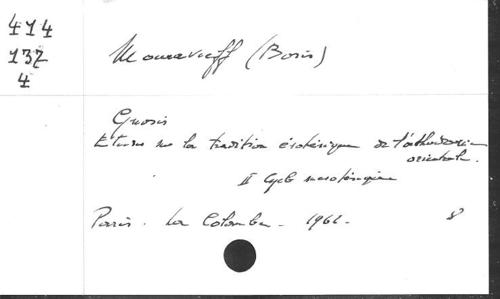 414
137
4
Mouravieff (Boris)
Gnosis
Etudes sur la tradition ésotérique de l'orthodoxie
orientale.
II Cycle mésotérique
Paris. La Colombe. 1962. 8